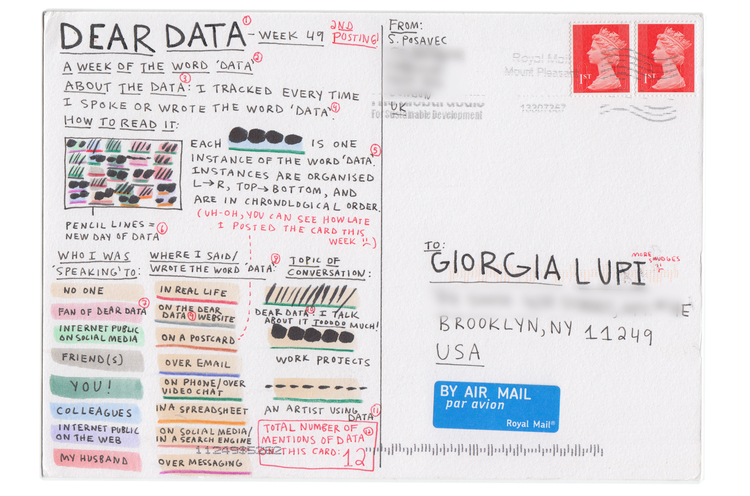 DEAR DATA ① - WEEK 49 2ND POSTING!
A WEEK OF THE WORD 'DATA' ②
ABOUT THE DATA ③: I TRACKED EVERY TIME
I SPOKE OR WROTE THE WORD 'DATA' ④
HOW TO READ IT:
EACH IS ONE
INSTANCE OF THE WORD 'DATA'. ⑤
INSTANCES ARE ORGANISED
L→R, TOP→BOTTOM, AND
ARE IN CHRONOLOGICAL ORDER.
(UH-OH, YOU CAN SEE HOW LATE
I POSTED THE CARD THIS
WEEK
PENCIL LINES = ⑥
NEW DAY OF DATA
WHO I WAS
'SPEAKING' TO:
NO ONE
FAN OF DEAR DATA ⑦
INTERNET PUBLIC
ON SOCIAL MEDIA
FRIEND(S)
YOU!
COLLEAGUES
INTERNET PUBLIC
ON THE WEB
MY HUSBAND
WHERE I SAID/
WROTE THE WORD 'DATA': ⑧
IN REAL LIFE
ON THE DEAR
DATA ⑨ WEBSITE
ON A POSTCARD
OVER EMAIL
ON PHONE/OVER
VIDEO CHAT
IN A SPREADSHEET
ON SOCIAL MEDIA/
IN A SEARCH ENGINE
OVER MESSAGING
TOPIC OF
CONVERSATION:
DEAR DATA ⑩: I TALK
ABOUT IT TOOOOO MUCH!
WORK PROJECTS
AN ARTIST USING
DATA ⑪
TOTAL NUMBER OF
MENTIONS OF DATA ⑫
ON THIS CARD: 12
FROM:
S. POSAVEC
UK
For Sustainable Development
Royal Mail
Mount Pleasant
13307357
1ST
1ST
TO:
GIORGIA LUPI
MORE SMUDGES
E
BROOKLYN, NY 11249
USA
BY AIR MAIL
par avion
Royal Mail®